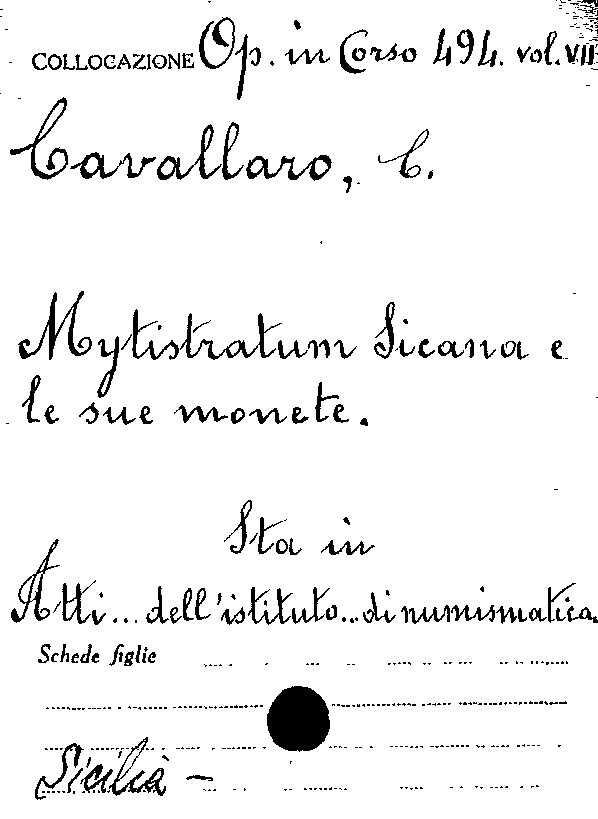 COLLOCAZIONE Op. in Corso 494. vol. VII
Cavallaro, C.
Mytistratum Sicana e
le sue monete.
Sta in
Atti... dell'istituto... di numismatica.
Schede figlie
Sicilia -